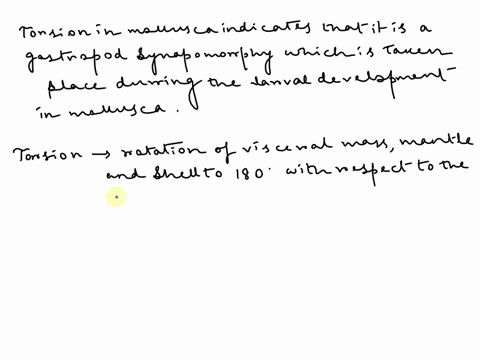 Torsion in mollusca indicates that it is a
gastropod synapomorphy which is taken
place durring the larval development
in mollusca.
Torsion → rotation of visceral mass, mantle
and shell to 180° with respect to the